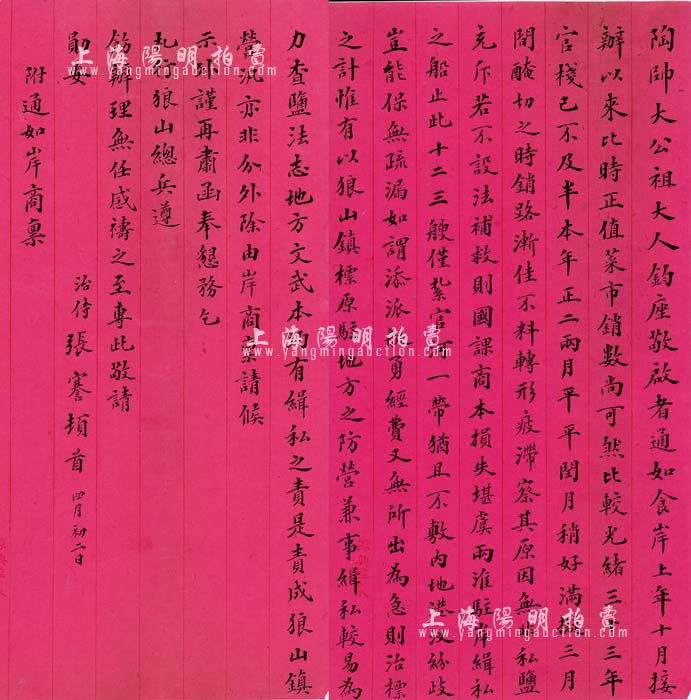 陶帥大公祖大人鈞座敬啟者通如食岸上年十月接
辦以來比時正值菜市銷數尚可然比較光緒三十三年
官棧已不及半本年正二兩月平平閏月稍好滿擬三月
間醃切之時銷路漸佳不料轉形疲滯察其原因無非私鹽
充斥若不設法補救則國課商本損失堪虞兩淮駐岸緝私
之船止此十二三艘僅紮官河一帶猶且不敷內地港汊紛歧
豈能保無疏漏如謂添派勇經費又無所出為急則治標
之計惟有以狼山鎮標原駐地方之防營兼事緝私較易為
力查鹽法志地方文武本有緝私之責是責成狼山鎮
營汛亦非分外除由岸商稟請候
示外謹再肅函奉懇務乞
札行狼山總兵遵
飭辦理無任感禱之至專此敬請
勛安
治侍張謇頓首 四月初二日
附通如岸商稟
上海陽明拍賣
www.yangmingauction.com
上海陽明拍賣
www.yangmingauction.com
上海陽明拍賣
www.yangmingauction.com
上海陽明拍賣
www.yangmingauction.com
上海陽明拍賣
www.yangmingauction.com
上海陽明拍賣
www.yangmingauction.com